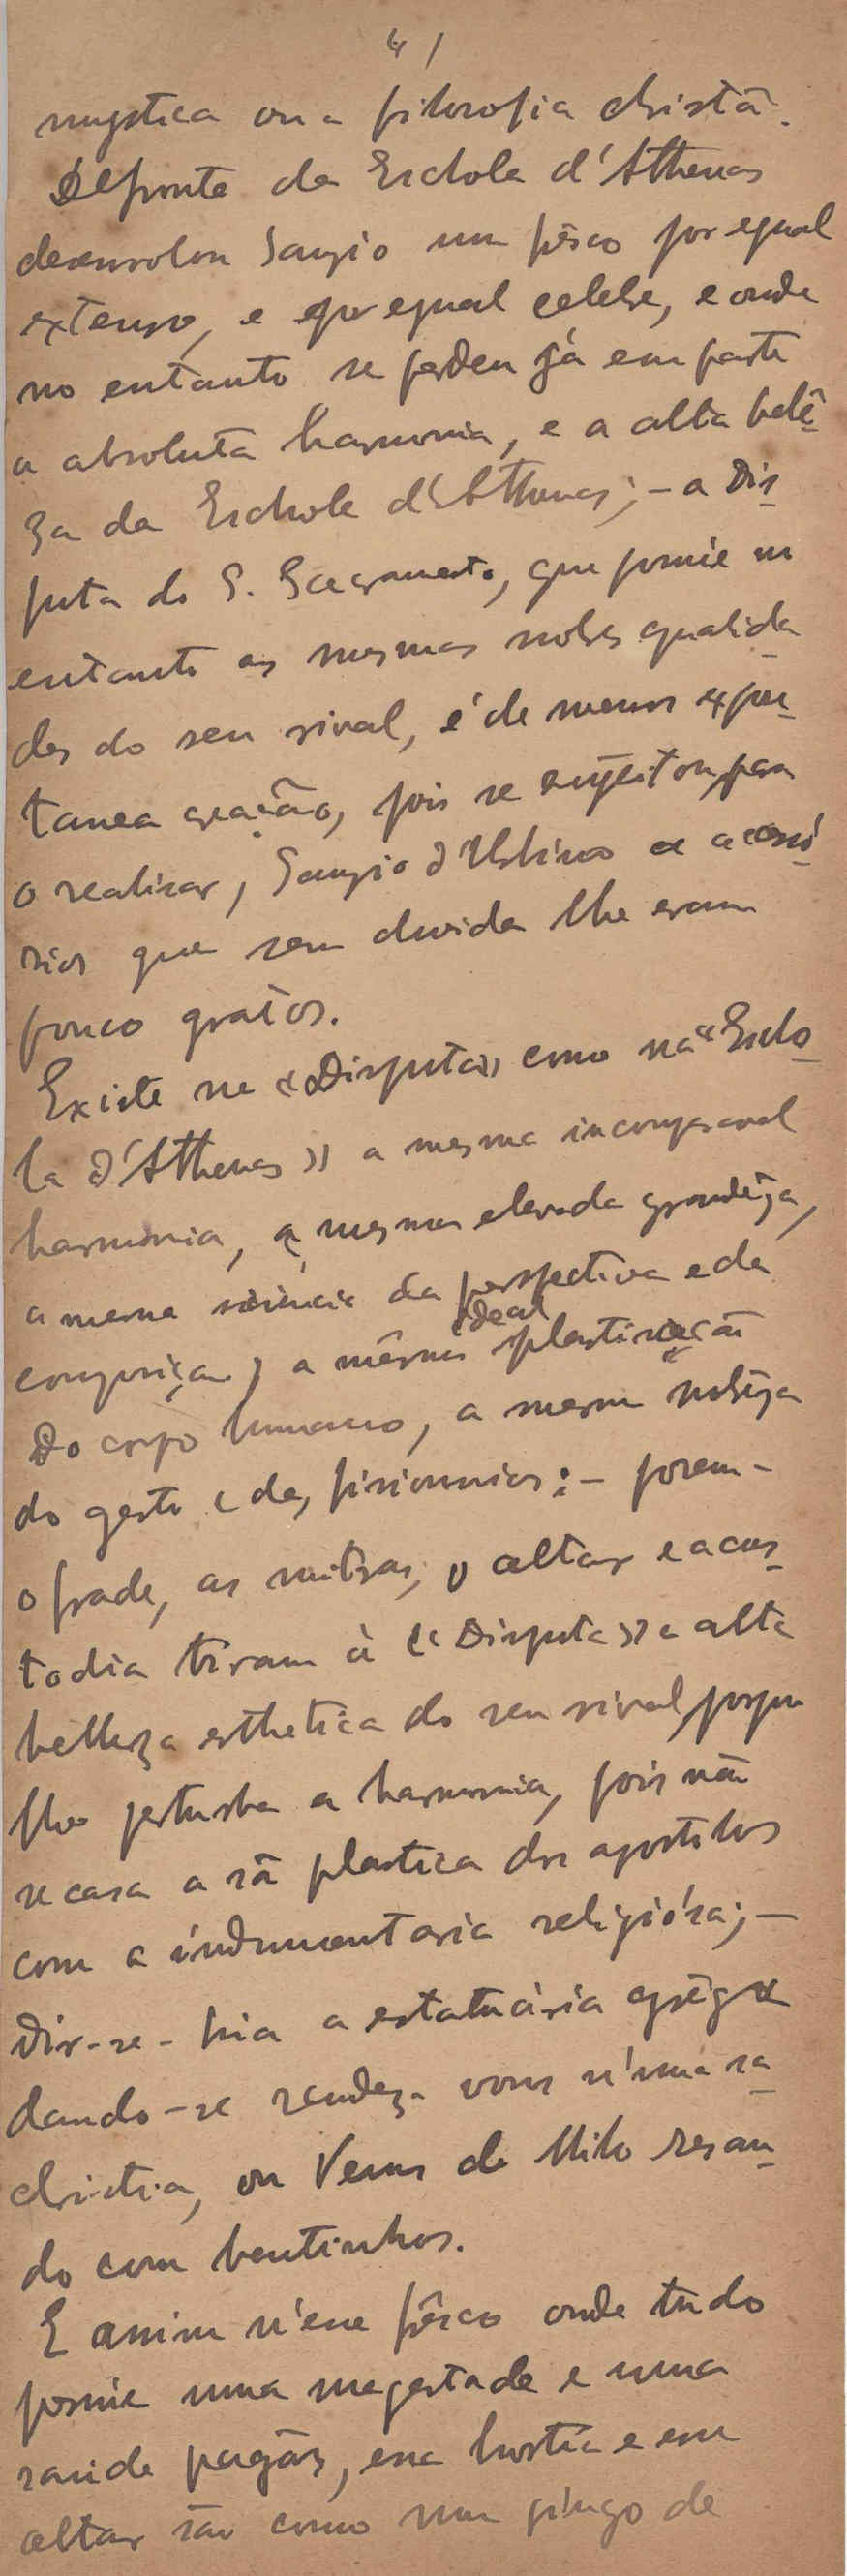 41
mystica ou a filosofia christã.
Defronte da Eschola d'Athenas
desenrolou Sanzio um frêsco por egual
extenso, e por egual celebre, e onde
no entanto se perdeu já em parte
a absoluta harmonia, e a alta belê-
za da Eschola d'Athenas; – a Dis-
puta do S. Sacramento, que possúe no
entanto as mesmas nobres qualida-
des do seu rival, é de menos expon-
tanea creação, pois se sujeitou, para
o realisar, Sanzio d'Urbino a acessó-
rios que sem duvida lhe eram
pouco gratos.
Existe na «Disputa» como na «Escho-
la d'Athenas» a mesma incomparavel
harmonia, a mesma elevada grandêza,
a mesma sciência da perspectiva e da
composiçao, a mêsma ideal plastisação
do corpo humano, a mesma nobrêza
do gesto e das fisionomias: – porem –
o frade, as mitras, o altar e a cus-
todia tiram á «Disputa» a alta
belleza esthetica do seu rival, porque
lhe perturba a harmonia, pois não
se casa a sã plastica dos apostolos
com a indumentaria religiósa; –
Dir-se-hia a estatuária grêga
dando-se rendez-vous n'uma sa-
christia, ou Venus de Milo resan-
do com bentinhos.
E assim n'esse frêsco onde tudo
possúe uma magestade e uma
saude pagãs, essa hostia e esse
altar são como um pingo de